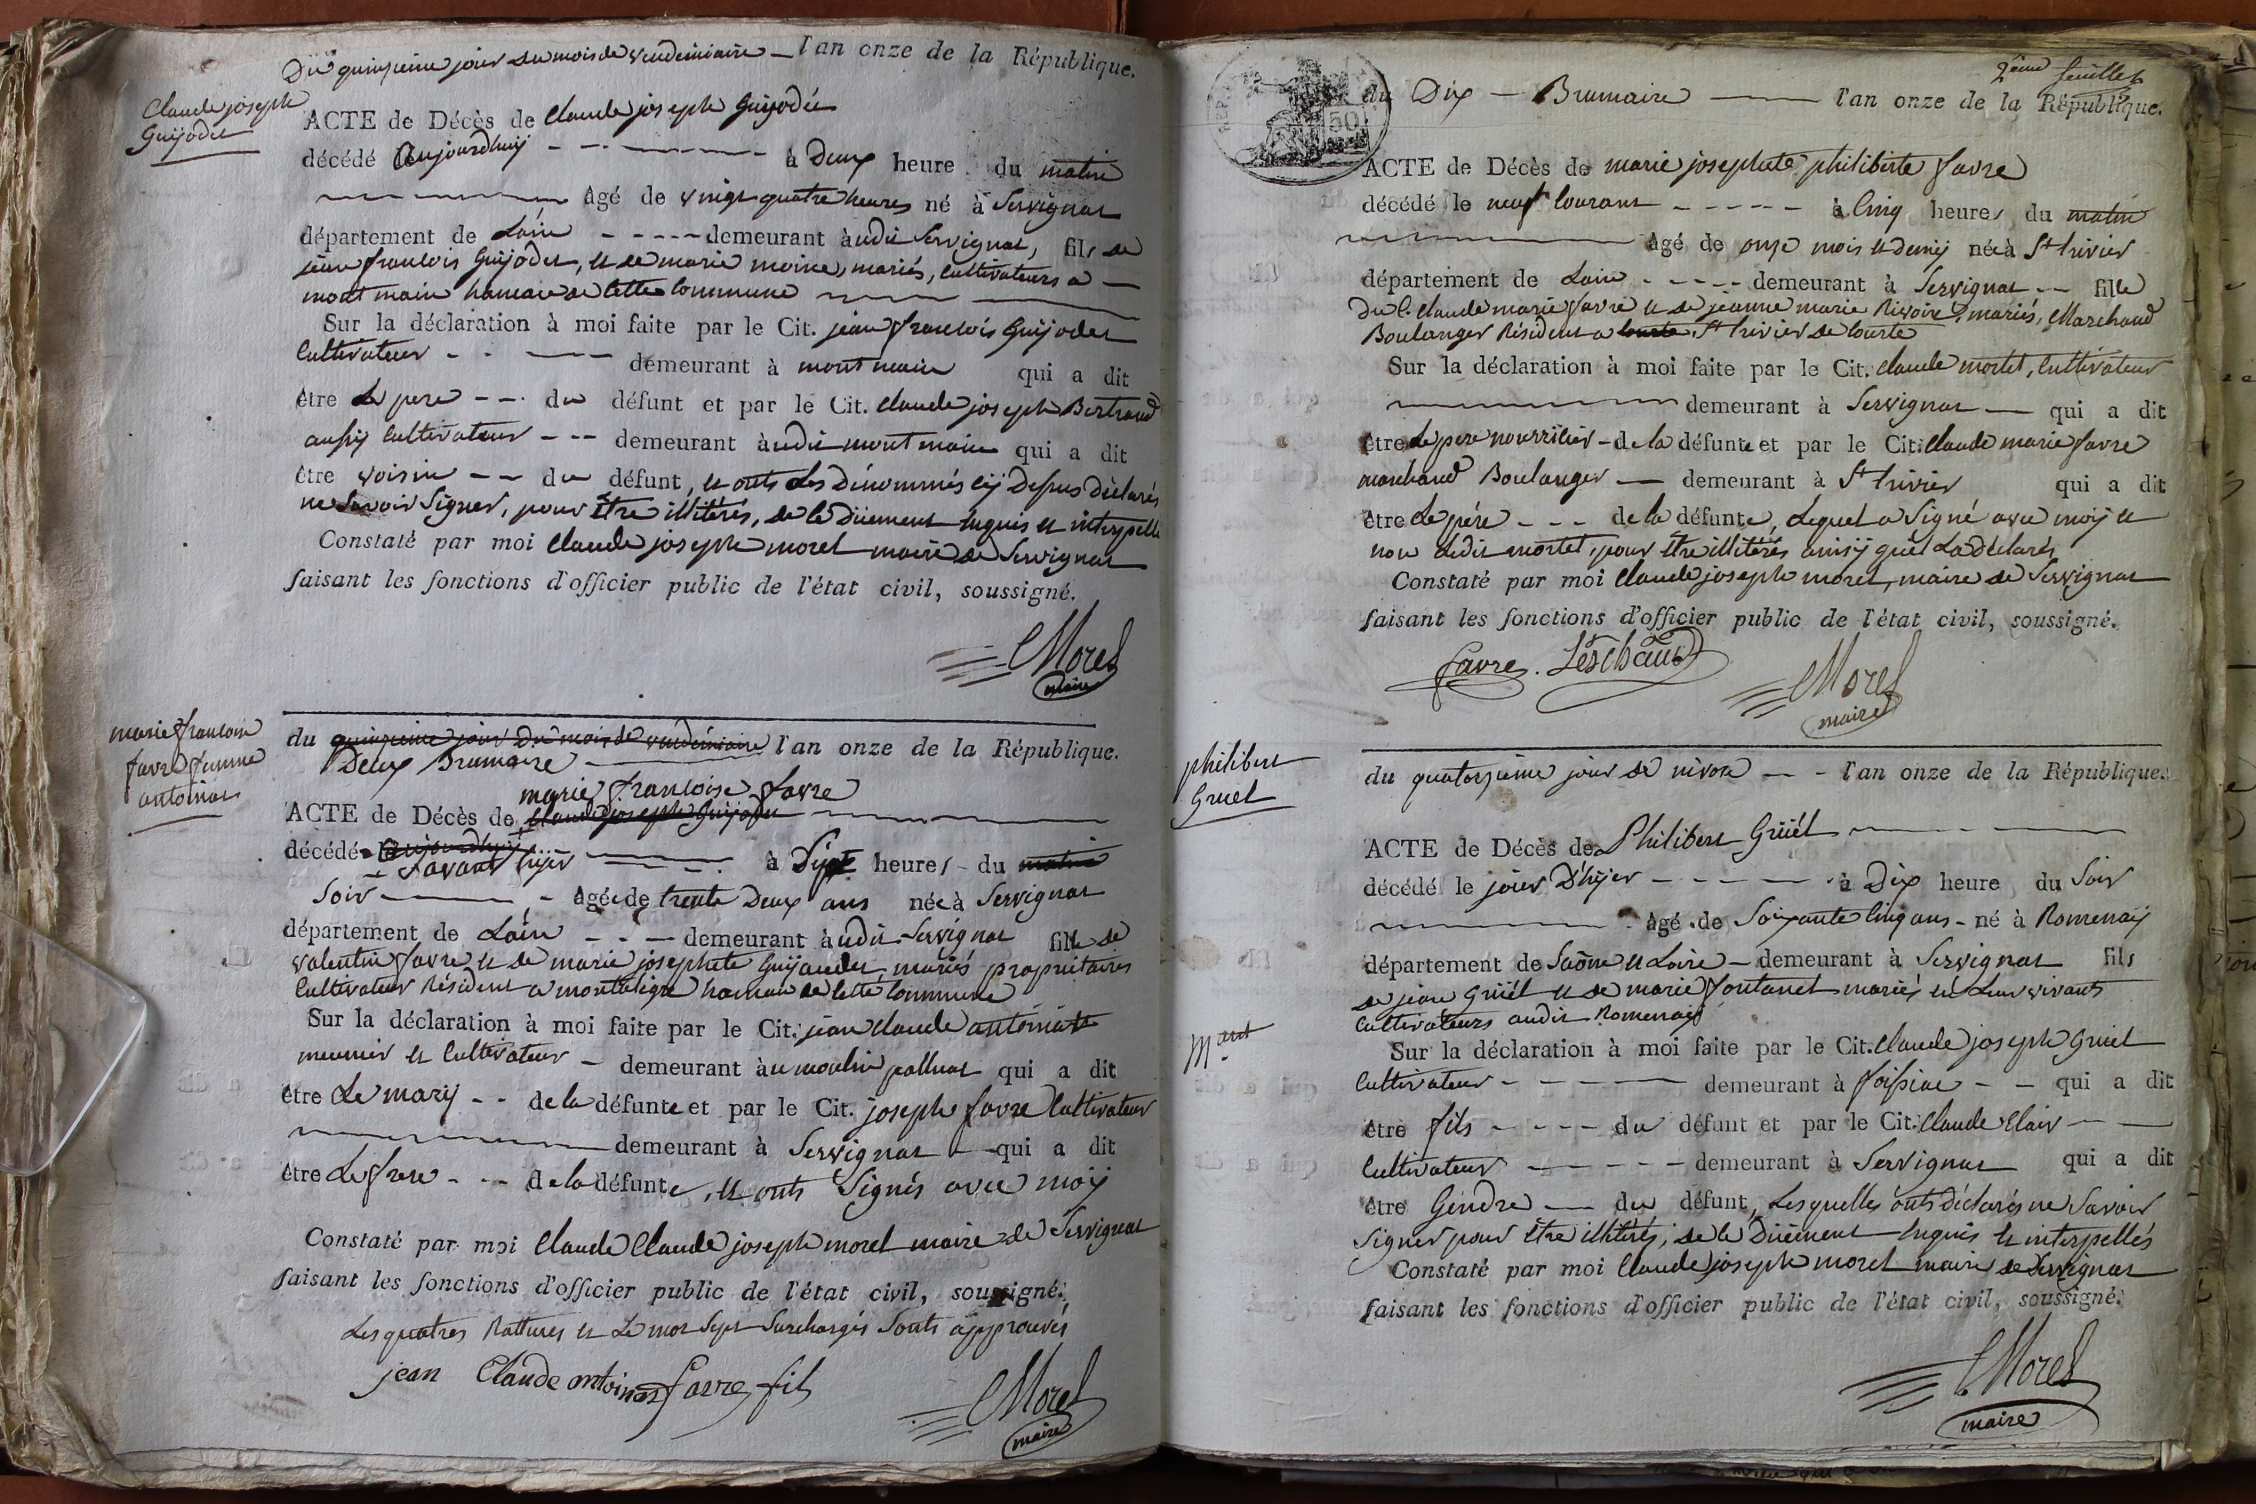 Du quinzieme jour du mois de vendemiaire — l'an onze de la République.
Claude joseph
Guijodet
ACTE de Décès de Claude joseph Guijodet
décédé aujourdhuij à Deux heure du matin
âgé de vingt quatre heures né à Servignat
département de Lain demeurant audit Servignat, fils de
jean francois Guijodet, et de marie moine, mariés, cultivateurs a
mont main hameau de cette commune
Sur la déclaration à moi faite par le Cit. jean francois Guijodet
cultivateur demeurant à mont main qui a dit
être Le pere du défunt et par le Cit. claude joseph Bertrand
aussij cultivateur demeurant audit mont main qui a dit
être voisin du défunt, et onts Les Dénommés cij Dessus déclarés
ne Savoir Signer, pour être illiterés, de ce Dûement Enquis et interpellé
Constaté par moi Claude joseph morel maire de Servignat
faisant les fonctions d'officier public de l'état civil, soussigné.
Morel
maire
marie francoise
favre femme
antoinat
du quinzieme jour Du mois de vendémiaire l'an onze de la République.
Deux Brumaire
marie francoise favre
ACTE de Décès de Claude joseph Guijodet
décédé aujourdhuij
L'avant hijer à Sept heures du matin
Soir âgée de trente Deux ans née à Servignat
département de Lain demeurant audit Servignat fille de
valentin favre et de marie josephete Guijaudet mariés propriétaires
cultivateur Résident a hameau de cette commune
Sur la déclaration à moi faite par le Cit. jean claude antoinat
meunier et cultivateur demeurant au moulin palluat qui a dit
être Le marij de la défunte et par le Cit. joseph favre cultivateur
demeurant à Servignat qui a dit
être Le frere de la défunte, et onts Signés avec moij
Constaté par moi Claude Claude joseph morel maire de Servignat
faisant les fonctions d'officier public de l'état civil, soussigné.
Les quatres Rattures et Le mot Sept Surchargés Sonts approuvés
jean Claude antoinat favre fils
Morel
maire
2eme feuillet
du Dix Brumaire l'an onze de la République.
50
ACTE de Décès de marie josephete philiberte favre
décédé le neuf courant à Cinq heures du matin
âgé de onze mois et Demij née à St trivier
département de Lain demeurant à Servignat fille
Du C. claude marie favre et de jeanne marie Rivoire, mariés, Marchand
Boulanger Résident a courte, St trivier de courte
Sur la déclaration à moi faite par le Cit. claude mortet, cultivateur
demeurant à Servignat qui a dit
être Le pere nourricier de la défunte et par le Cit. Claude marie favre
marchand Boulanger demeurant à St trivier qui a dit
être Le pére de la défunte, Lequel a Signé avec moij et
non Ledit mortet, pour être illitérés ainsij quil La déclarés
Constaté par moi Claude joseph morel, maire de Servignat
faisant les fonctions d'officier public de l'état civil, soussigné.
favre
Morel
maire
philibert
Gruel
du quatorzieme jour de nivose l'an onze de la République.
ACTE de Décès de Philibert Grüél
décédé le jour D'hijer à Dix heure du Soir
âgé de Soixante cinq ans né à Romenaij
département de Saône et Loire demeurant à Servignat fils
de jean Grüél et de marie fontanet mariés en Leur vivants
cultivateurs audit Romenaij
Mant
Sur la déclaration à moi faite par le Cit. Claude joseph Gruel
cultivateur demeurant à foissiac qui a dit
être fils du défunt et par le Cit. Claude Clair
Cultivateur demeurant à Servignat qui a dit
être Gendre du défunt, Lesquelles onts déclarés ne Savoir
Signer pour être illitérés, de ce Dûëment Enquis et interpellés
Constaté par moi Claude joseph morel maire de Servignat
faisant les fonctions d'officier public de l'état civil, soussigné.
Morel
maire